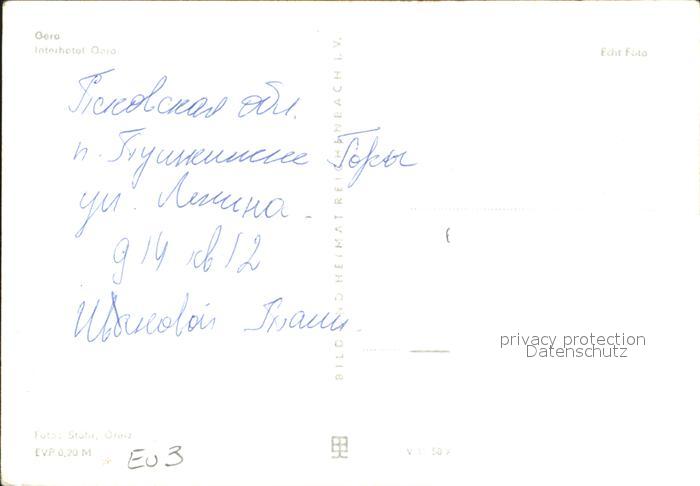 Gera
Interhotel Gera
Echt Foto
Псковская обл.
п. Пушкинские Горы
ул. Ленина
д 14 кв 12
BILD UND HEIMAT REICHENBACH I. V.
privacy protection
Datenschutz
EVP 0,20 M
EU 3